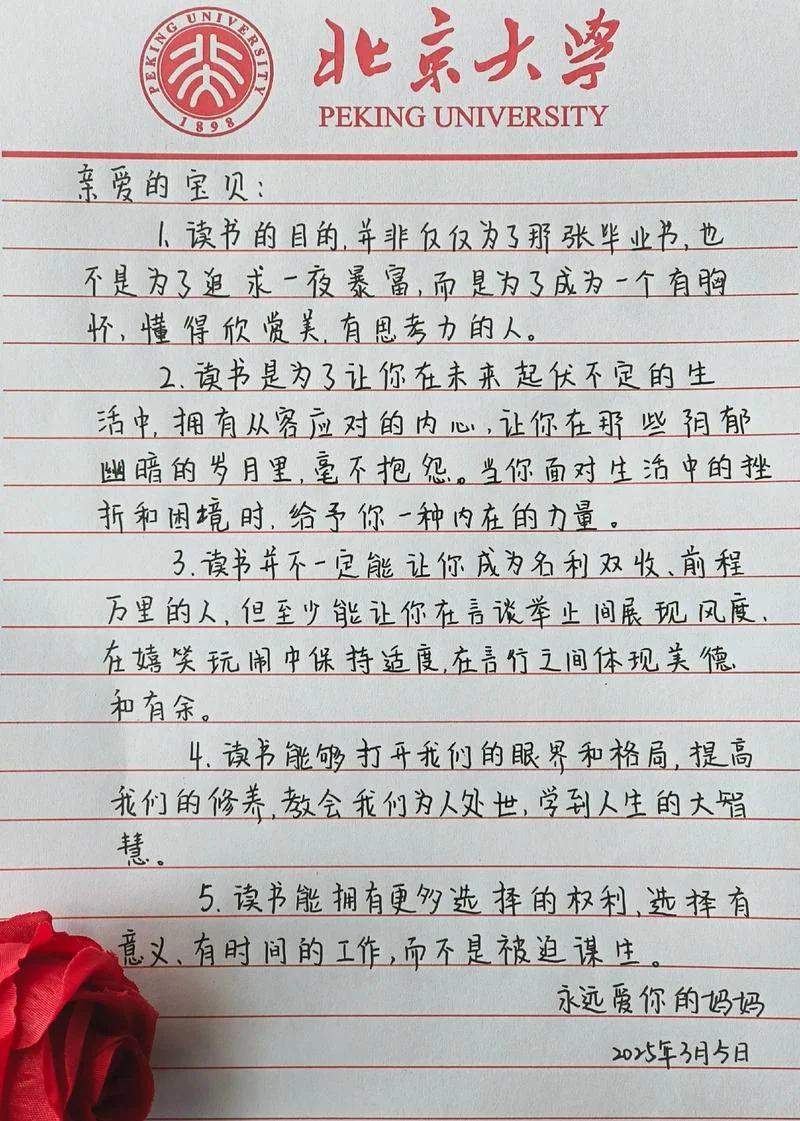 PEKING UNIVERSITY
1898
北京大学
PEKING UNIVERSITY
亲爱的宝贝:
1. 读书的目的,并非仅仅为了那张毕业书,也
不是为了追求一夜暴富,而是为了成为一个有胸
怀、懂得欣赏美,有思考力的人。
2. 读书是为了让你在未来起伏不定的生
活中,拥有从容应对的内心,让你在那些阴郁
幽暗的岁月里,毫不抱怨。当你面对生活中的挫
折和困境时,给予你一种内在的力量。
3. 读书并不一定能让你成为名利双收、前程
万里的人,但至少能让你在言谈举止间展现风度,
在嬉笑玩闹中保持适度,在言行之间体现美德
和有余。
4. 读书能够打开我们的眼界和格局,提高
我们的修养,教会我们为人处世,学到人生的大智
慧。
5. 读书能拥有更多选择的权利,选择有
意义、有时间的工作,而不是被迫谋生。
永远爱你的妈妈
2025年3月5日